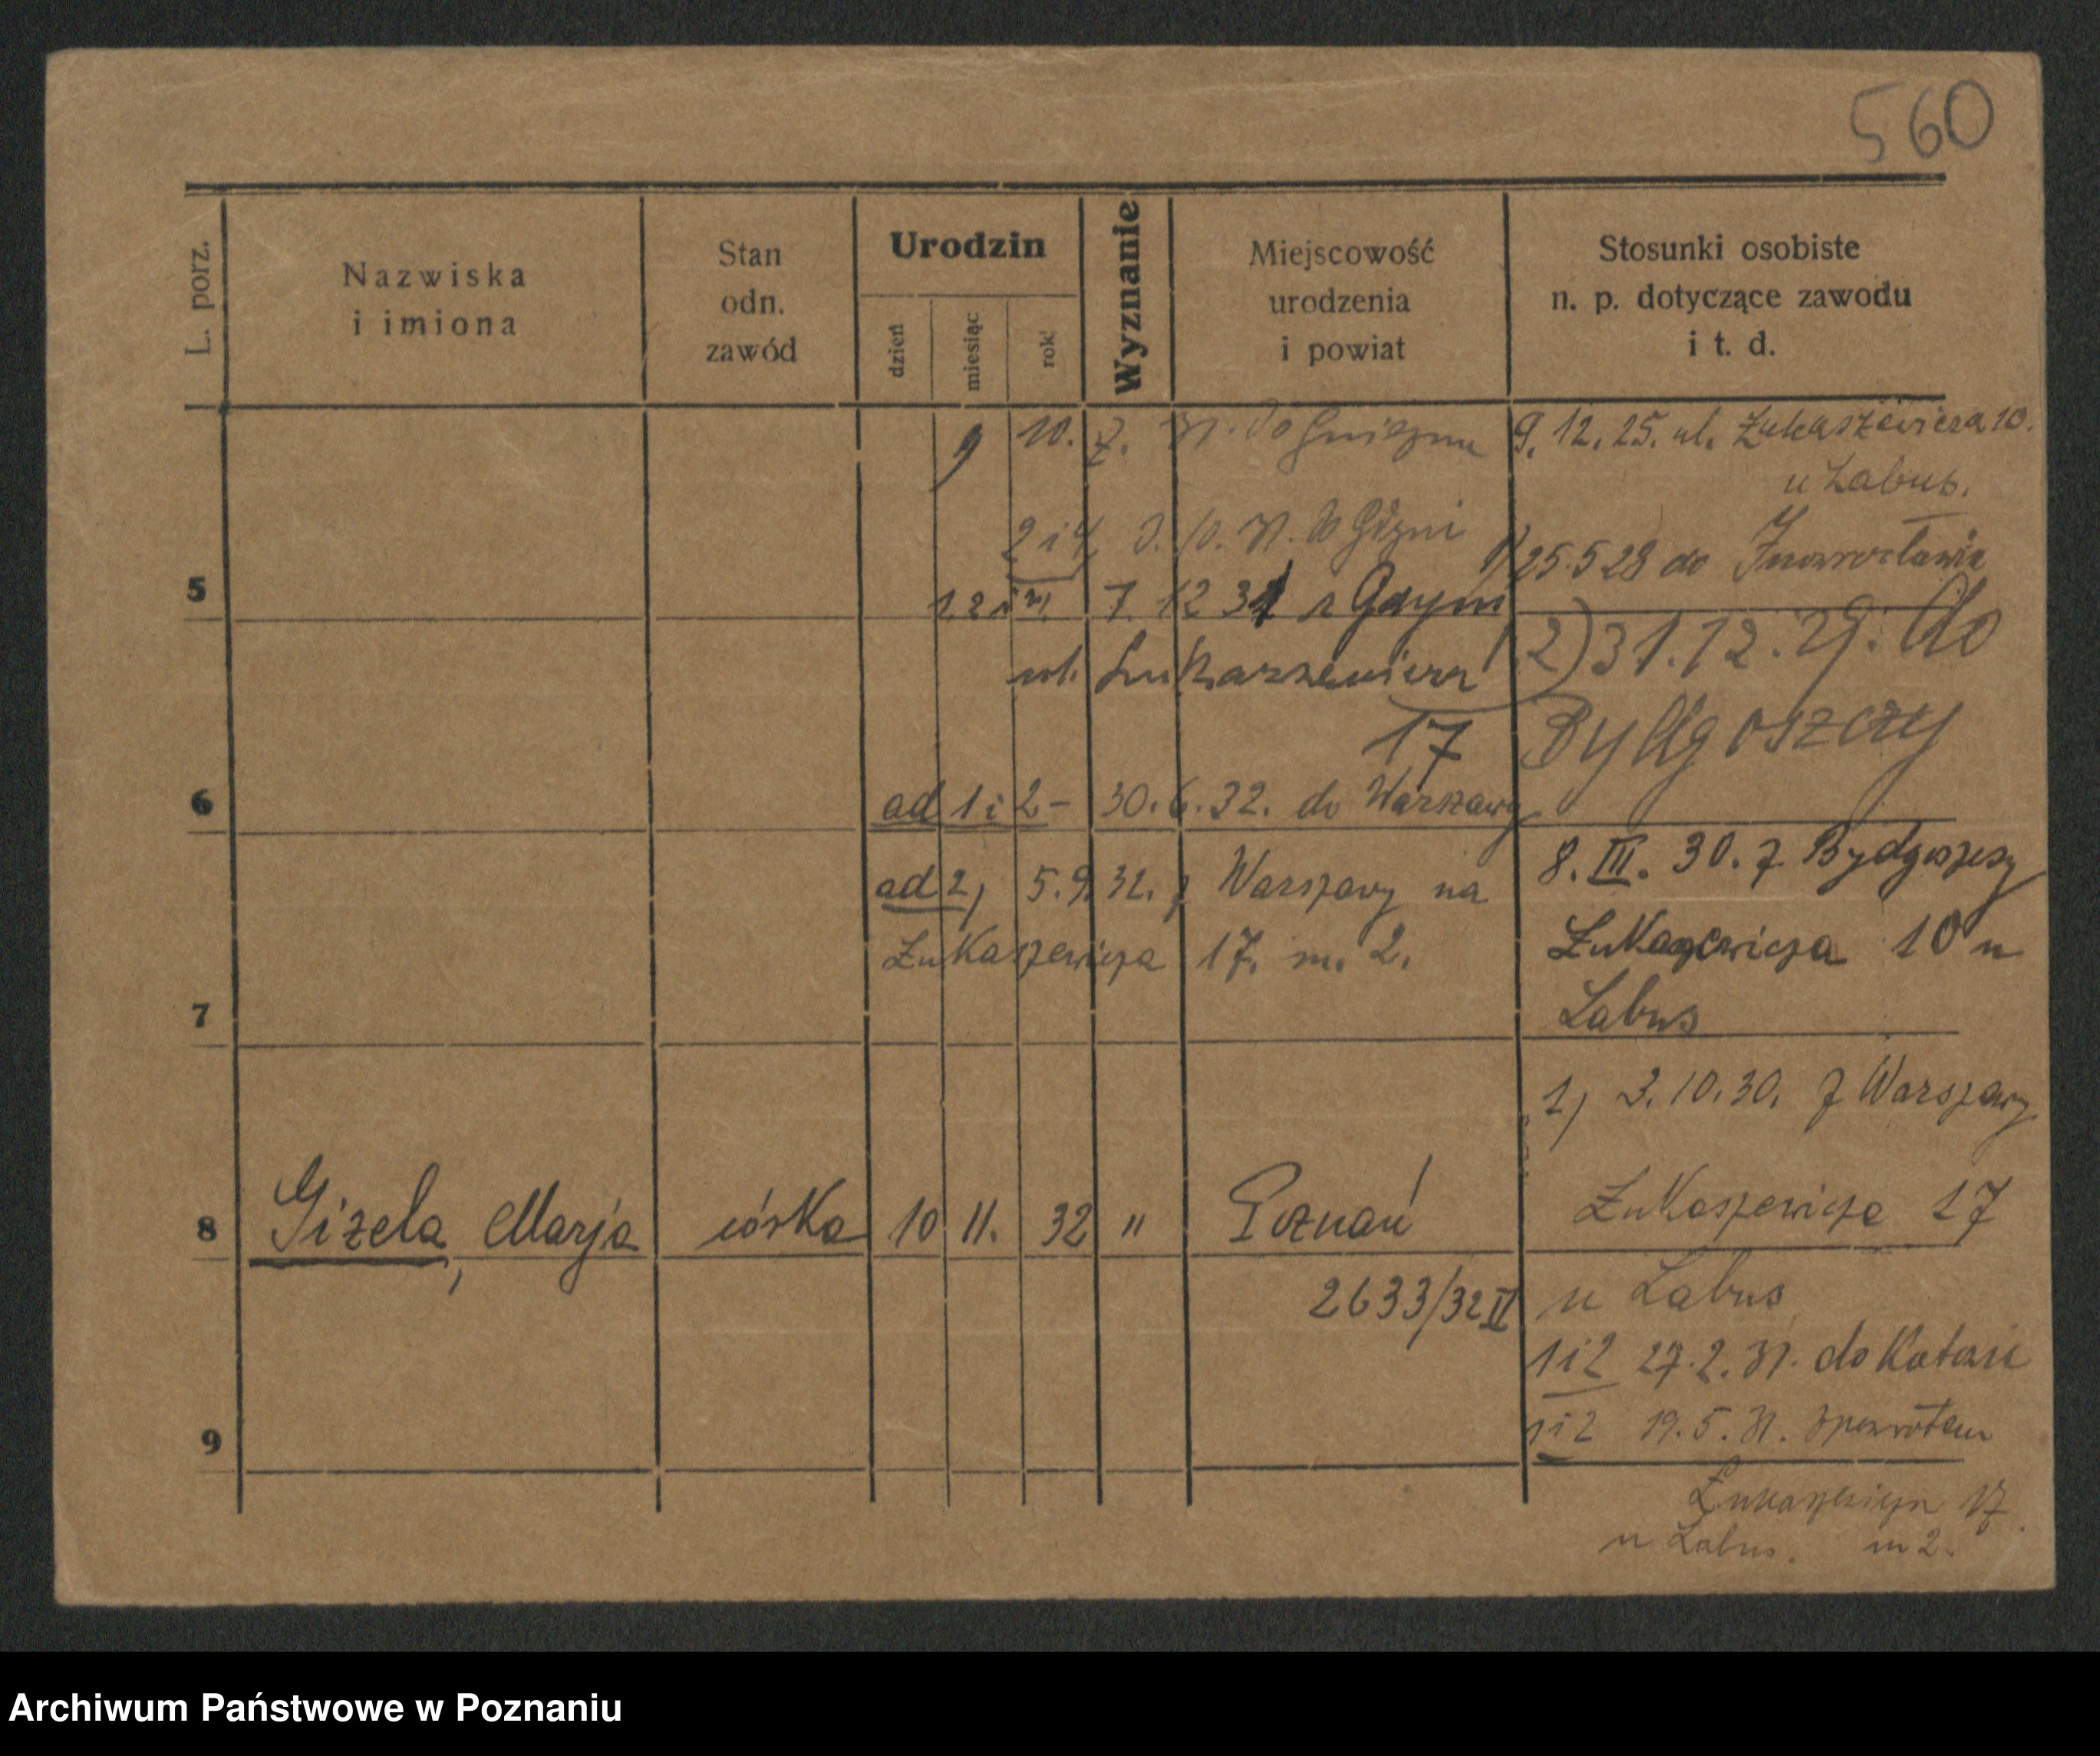 560
L. porz.
Nazwiska
i imiona
Stan
odn.
zawód
Urodzin
dzień
miesiąc
rok
Wyznanie
Miejscowość
urodzenia
i powiat
Stosunki osobiste
n. p. dotyczące zawodu
i t. d.
10. 7. 31. do Gniezna
2 i 4, 3. 10. 31. do Gdyni
5
7. 12 31 z Gdyni
ul. Łukaszewicza
17
6
ad 1 i 2 - 30. 6. 32. do Warszawy
ad 2, 5. 9. 32. z Warszawy na
Łukaszewicza 17. m. 2.
7
8 Gizela, Marja córka 10 11. 32 " Poznań
2633/32 II
9
9. 12. 25. ul. Łukaszewicza 10.
u Labus.
1) 25.5 28 do Inowrocławia
2) 31.12.29. do
Bydgoszczy
8. III. 30. z Bydgoszczy
Łukaszewicza 10 u
Labus
1, 3. 10. 30. z Warszawy
Łukaszewicza 17
u Labus
1 i 2 27. 2. 31. do Katowic
1 i 2 19. 5. 31. zpowrotem
Łukaszewicza 17
u Labus. m 2.
Archiwum Państwowe w Poznaniu